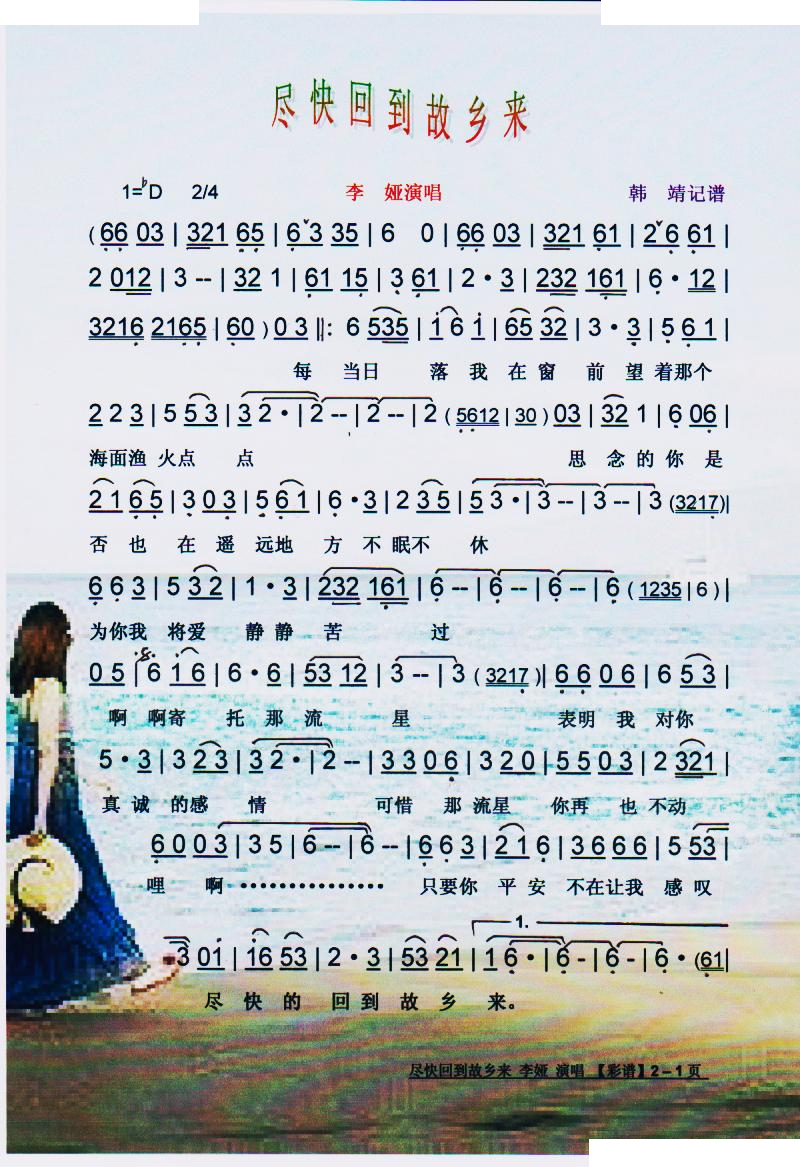 尽快回到故乡来
1=♭D 2/4 李 娅演唱 韩 靖记谱
( 66 03 | 321 65 | 6 3 35 | 6 0 | 66 03 | 321 61 | 2 6 61 |
2 012 | 3 -- | 32 1 | 61 15 | 3 61 | 2 • 3 | 232 161 | 6 • 12 |
3216 2165 | 60 ) 0 3 ‖: 6 535 | 1 6 1 | 65 32 | 3 • 3 | 5 6 1 |
每 当日 落 我 在 窗 前 望 着那个
2 2 3 | 5 5 3 | 3 2 • | 2 -- | 2 -- | 2 ( 5612 | 30 ) 03 | 32 1 | 6 06 |
海面渔 火点 点 思 念 的 你 是
2 1 6 5 | 3 0 3 | 5 6 1 | 6 • 3 | 2 3 5 | 5 3 • | 3 -- | 3 -- | 3 (3217)|
否 也 在 遥 远地 方 不 眠不 休
6 6 3 | 5 3 2 | 1 • 3 | 232 161 | 6 -- | 6 -- | 6 -- | 6 ( 1235 | 6 ) |
为你我 将爱 静 静 苦 过
0 5 | 6 1 6 | 6 • 6 | 53 12 | 3 -- | 3 ( 3217 )| 6 6 0 6 | 6 5 3 |
啊 啊寄 托 那 流 星 表明 我 对你
5 • 3 | 3 2 3 | 3 2 • | 2 -- | 3 3 0 6 | 3 2 0 | 5 5 0 3 | 2 321 |
真 诚 的感 情 可惜 那 流星 你再 也 不动
6 0 0 3 | 3 5 | 6 -- | 6 -- | 6 6 3 | 2 1 6 | 3 6 6 6 | 5 53 |
哩 啊 ••••••••••••••• 只要你 平 安 不在让我 感 叹
1.
3 01 | 16 53 | 2 • 3 | 53 21 | 1 6 • | 6 - | 6 - | 6 • (61|
尽 快 的 回 到 故 乡 来。
尽快回到故乡来 李娅 演唱 【彩谱】2－1页